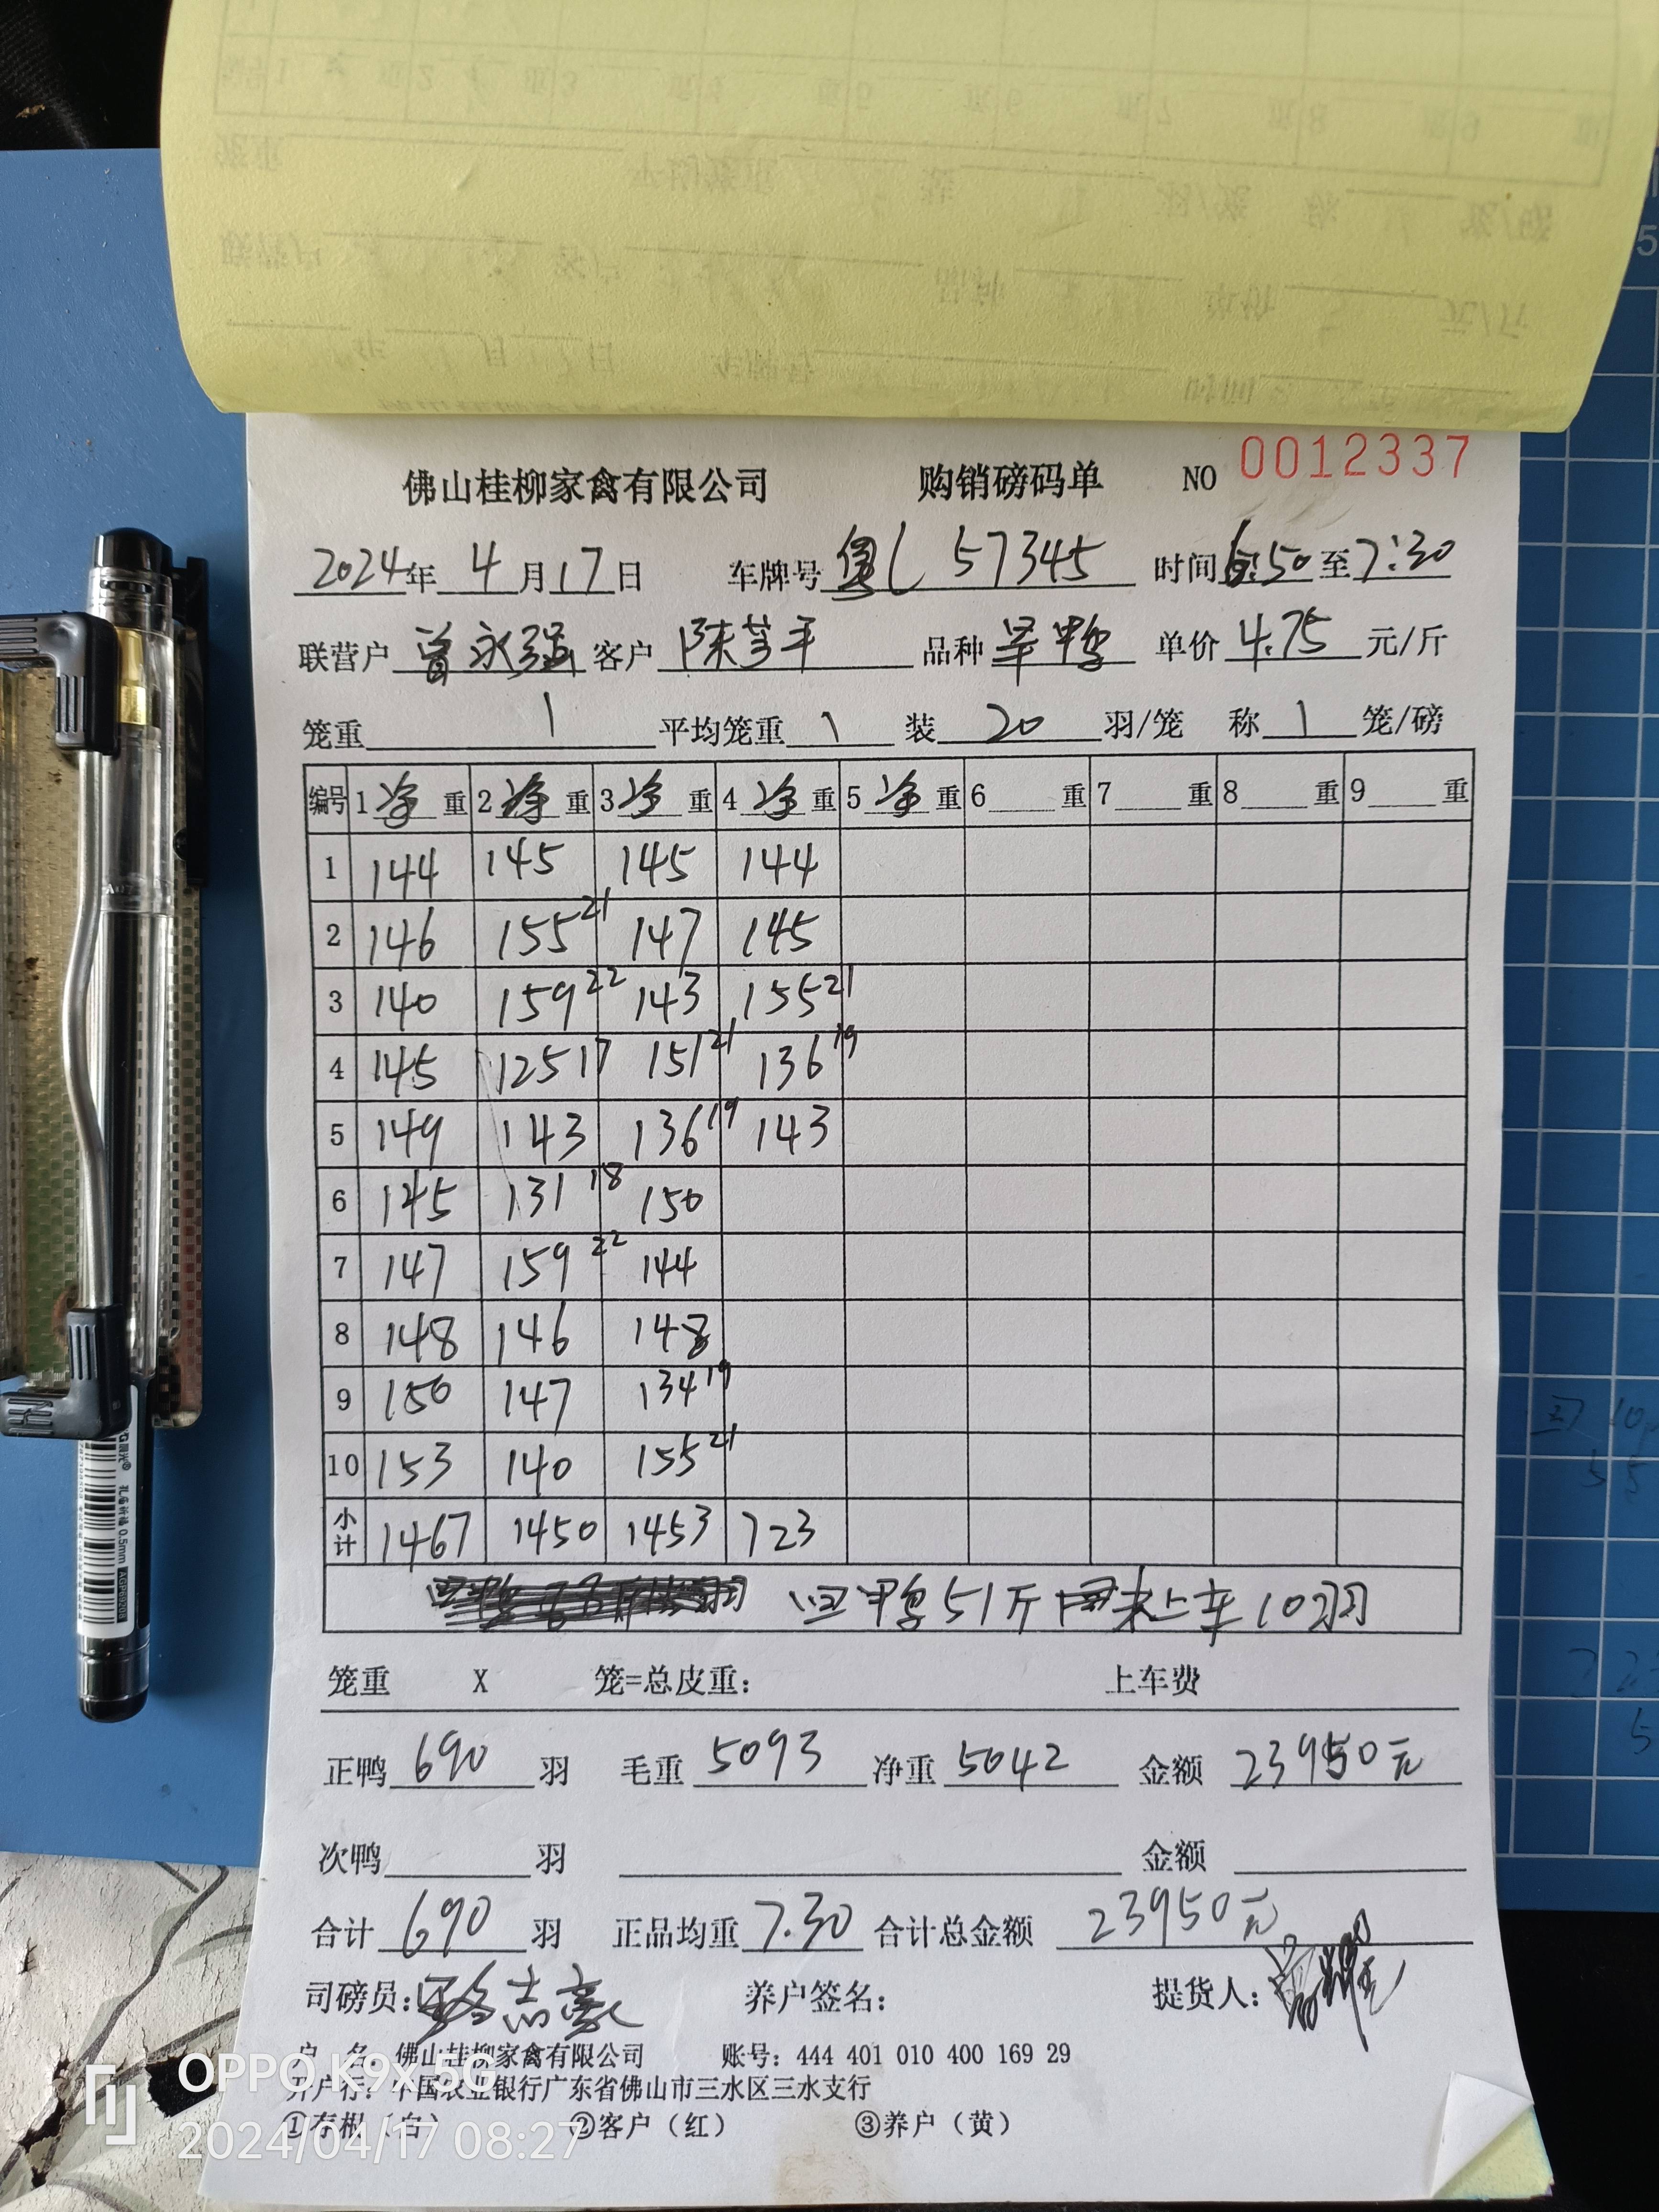 佛山桂柳家禽有限公司 购销磅码单 NO 0012337
2024年 4月17日 车牌号 粤L 57345 时间6:50至7:30
联营户 曾永强 客户 陈芳平 品种 单价 4.75 元/斤
笼重 1 平均笼重 1 装 20 羽/笼 称 1 笼/磅
编号 1净重 2净重 3净重 4净重 5净重 6 重 7 重 8 重 9 重
1 144 145 145 144
2 146 155 21 147 145
3 140 159 22 143 155 21
4 145 125 17 151 21 136 19
5 149 143 136 19 143
6 145 131 18 150
7 147 159 22 144
8 148 146 148
9 150 147 134 19
10 153 140 155 21
小计 1467 1450 1453 723
回鸭51斤 未上车10羽
笼重 X 笼=总皮重: 上车费
正鸭 690 羽 毛重 5093 净重 5042 金额 23950元
次鸭 羽 金额
合计 690 羽 正品均重 7.30 合计总金额 23950元
司磅员: 骆志豪 养户签名: 提货人:
户 名 佛山桂柳家禽有限公司 账号: 444 401 010 400 169 29
开户行: 中国农业银行广东省佛山市三水区三水支行
①存根（白） ②客户（红） ③养户（黄）
OPPO K9x 5G
2024/04/17 08:27
孔庙祈福 0.5mm AGP69208